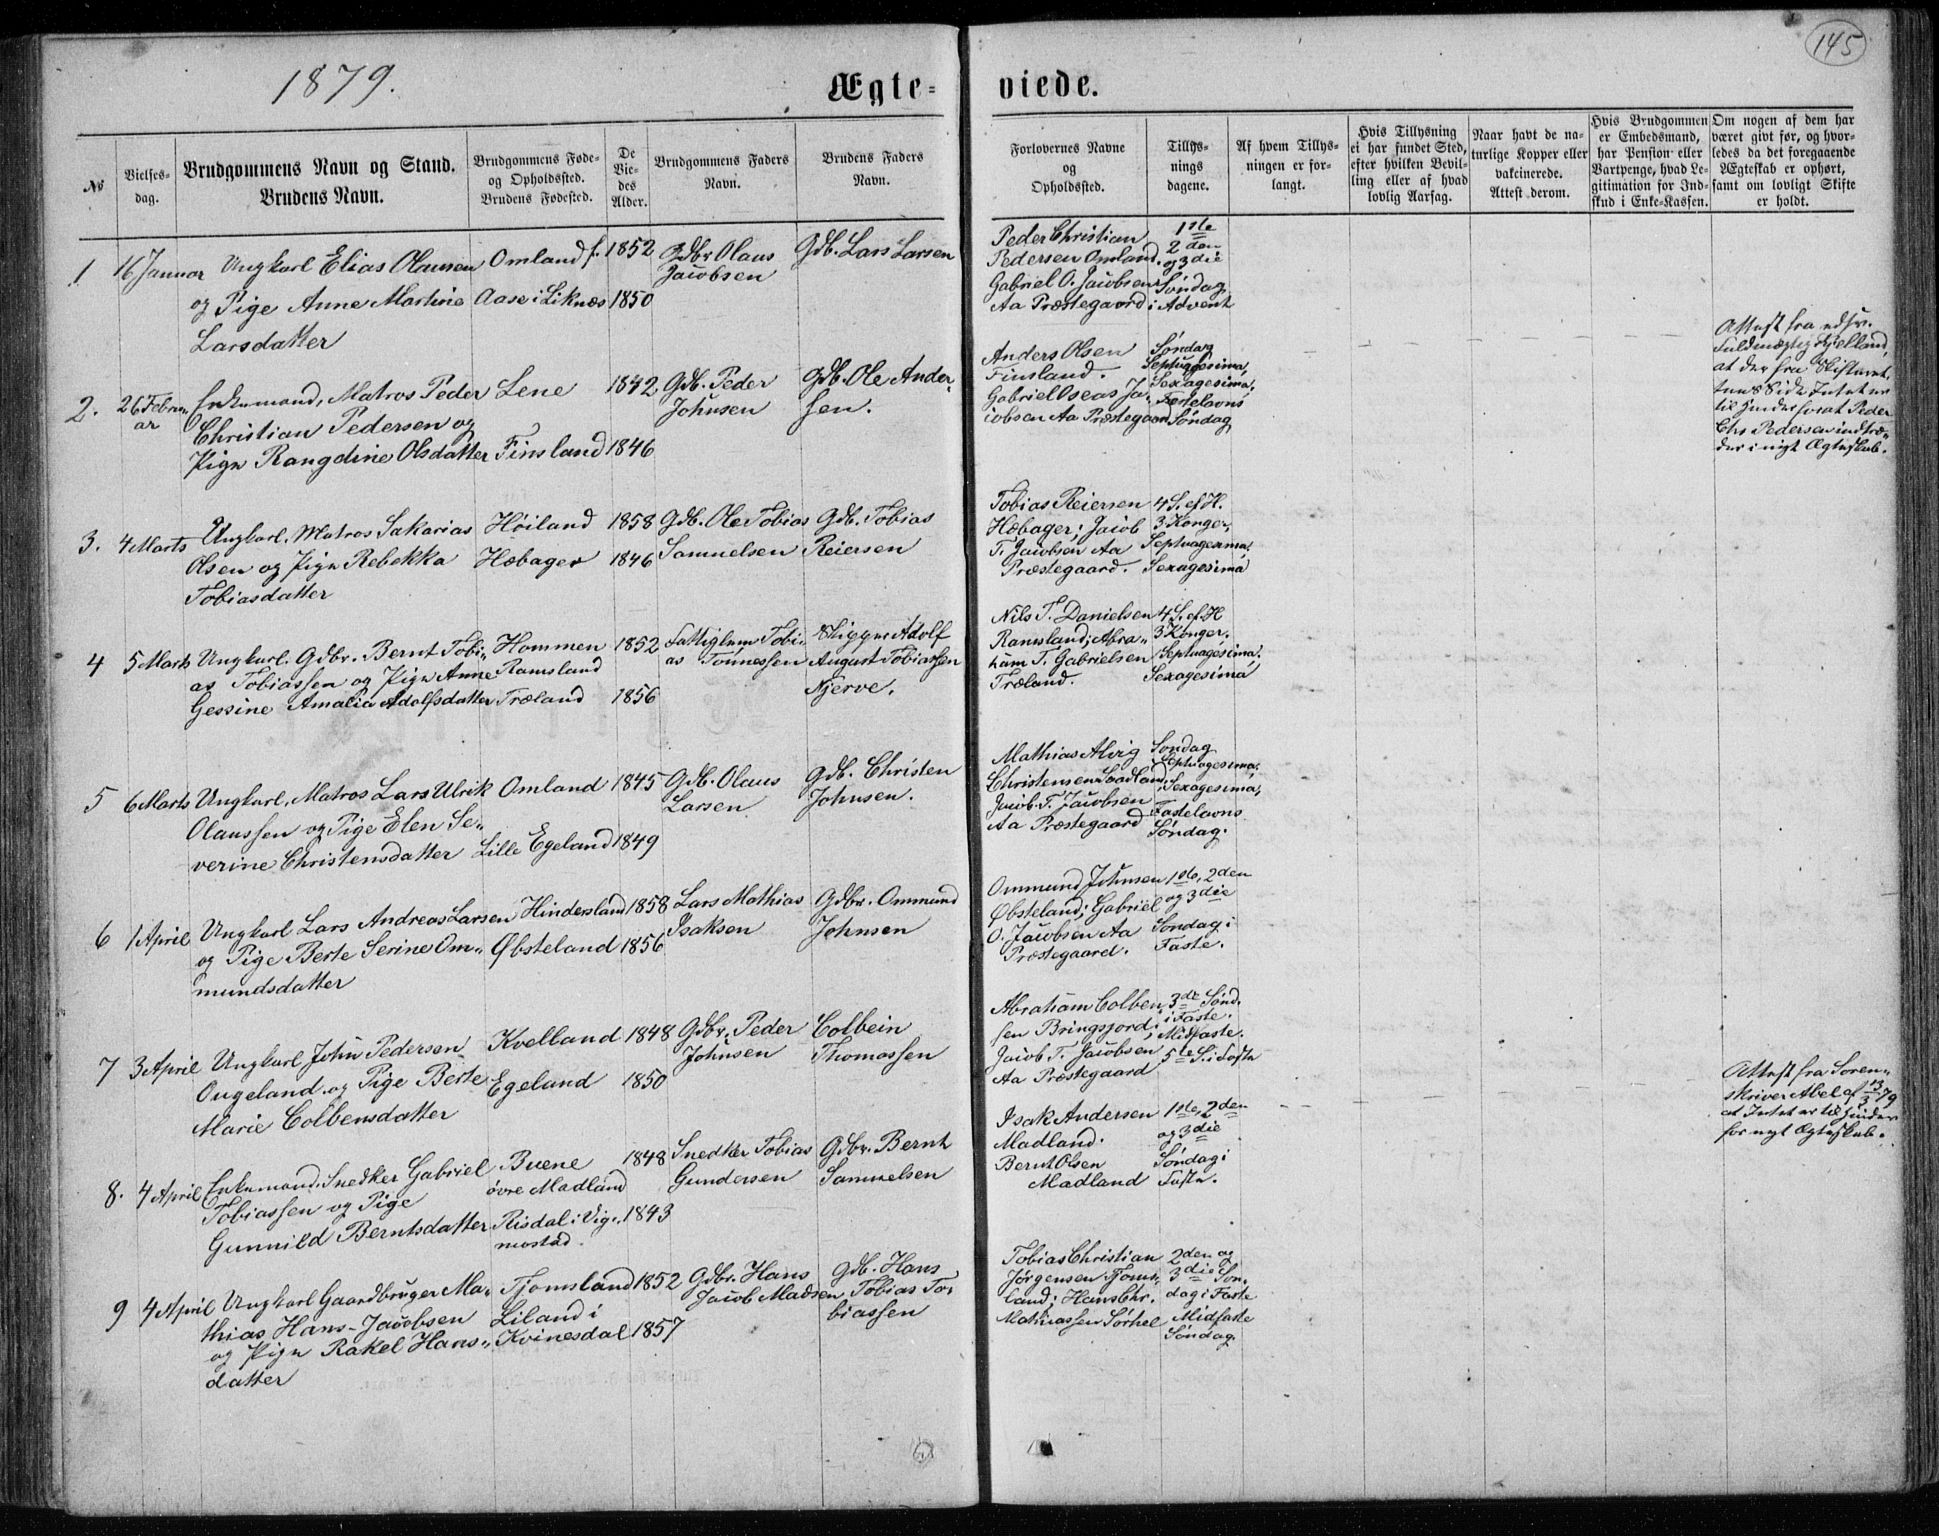 145
1879.
Ægte-
viede.
№
Vielses-
dag.
Brudgommens Navn og Stand.
Brudens Navn.
Brudgommens Føde-
og Opholdssted.
Brudens Fødested.
De
Vie-
des
Alder.
Brudgommens Faders
Navn.
Brudens Faders
Navn.
Forlovernes Navne
og
Opholdssted.
Tillys-
nings
dagene.
Af hvem Tillys-
ningen er for-
langt.
Hvis Tillysning
ei har fundet Sted,
efter hvilken Bevil-
ling eller af hvad
lovlig Aarsag.
Naar havt de na-
turlige Kopper eller
vakcinerede.
Attest derom.
Hvis Brudgommen
er Embedsmand,
har Pension eller
Vartpenge, hvad Le-
gitimation for Ind-
skud i Enke-Kassen.
Om nogen af dem har
været givt før, og hvor-
ledes da det foregaaende
Ægteskab er ophørt,
samt om lovligt Skifte
er holdt.
1
16 Januar
Ungkarl Elias Olausen
og Pige Anne Martine
Larsdatter
Omland f.
Aase i Liknes
1852
1850
Gdbr Olaus
Jacobsen
Gdb. Lars Larsen
Peder Christian
Pedersen Omland.
Gabriel O. Jacobsen
Aa Præstegaard
1ste
2den
og 3die
Søndag
i Advent
2.
26 Febru-
ar
Enkemand, Matros Peder
Christian Pedersen og
Pige Rangdine Olsdatter
Lene
Finsland
1842
1846
Gdb. Peder
Johnsen
Gdb. Ole Ander-
sen.
Anders Olsen
Finsland.
Gabriel Oseas Ja-
cobsen Aa Præstegaard
Søndag
Septuagesima,
Sexagesima,
Fastelavns
Søndag
Attest fra edsv.
Fuldmægtig Kjelland,
at der fra Skifteret-
tens Side Intet er
til Hinder for at Peder
Chr. Pedersen indtræ-
der i nyt Ægteskab.
3.
4 Marts
Ungkarl. Matros Sakarias
Olsen og Pige Rebekka
Tobiasdatter
Høiland
Hæbager
1858
1846
Gdb. Ole Tobias
Samuelsen
Gdb. Tobias
Reiersen
Tobias Reiersen
Hæbager; Jacob
T. Jacobsen Aa
Præstegaard.
4 S. ef. H.
3 Konger,
Septuagesima,
Sexagesima
4
5 Marts
Ungkarl. Gdbr. Bernt Tobi-
as Tobiassen og Pige Anne
Gessine Amalia Adolfsdatter
Hommen
Ramsland
Træland
1852
1856
Fattiglem Tobi-
as Tønnessen
Skipper Adolf
August Tobiassen
Njerve.
Nils T. Danielsen
Ramsland; Abra-
ham T. Gabrielsen
Træland.
4 S. ef. H
3 Konger.
Septuagesima.
Sexagesima
5
6 Marts
Ungkarl, Matros Lars Ulrik
Olaussen og Pige Elen Se-
verine Christensdatter
Omland
Lille Egeland
1845
1849
Gdb. Olaus
Larsen
Gdb. Christen
Johnsen.
Mathias Alvig
Christensen
Jacob T. Jacobsen
Aa Præstegaard
Søndag
Septuagesima,
Sexagesima,
Fastelavns
Søndag.
6
1 April
Ungkarl Lars Andreas Larsen
og Pige Berte Serine Om-
mundsdatter
Hindersland
Øbsteland
1858
1856
Lars Mathias
Isaksen
Gdbr. Ommund
Johnsen
Ommund Johnsen
Øbsteland; Gabriel
O. Jacobsen Aa
Præstegaard.
1ste, 2den
og 3die
Søndag i
Faste.
7
3 April
Ungkarl John Pedersen
Ougeland og Pige Berte
Marie Colbensdatter
Kvelland
Egeland
1848
1850
Gdbr. Peder
Johnsen
Colbein
Thomassen
Abraham Colben-
sen Bringsjord;
Jacob T. Jacobsen
Aa Præstegaard
3de Sønd.
i Faste.
Midfaste.
5te S. i Faste
8.
4 April
Enkemand. Snedker Gabriel
Tobiassen og Pige
Gunnild Berntsdatter
Buene
øvre Madland
Risdal i Vig-
mostad.
1848
1843
Snedker Tobias
Gundersen
Gdbr. Bernt
Samuelsen
Isak Andersen
Madland.
Bernt Olsen
Madland
1ste, 2den
og 3die
Søndag i
Faste.
Attest fra Soren-
skriver Abel af 13/3 79
at Intet er til Hinder
for nyt Ægteskab.
9
4 April
Ungkarl Gaardbruger Ma-
thias Hans-Jacobsen
og Pige Rakel Hans-
datter
Tjomsland
Liland i
Kvinesdal
1852
1857
Gdbr. Hans
Jacob Madsen
Gdb. Hans
Tobias To-
biassen
Tobias Christian
Jørgensen Tjoms-
land; Hans Chr.
Mathiassen Sørhel
2den og
3die Søn-
dag i Faste
Midfaste
Søndag.